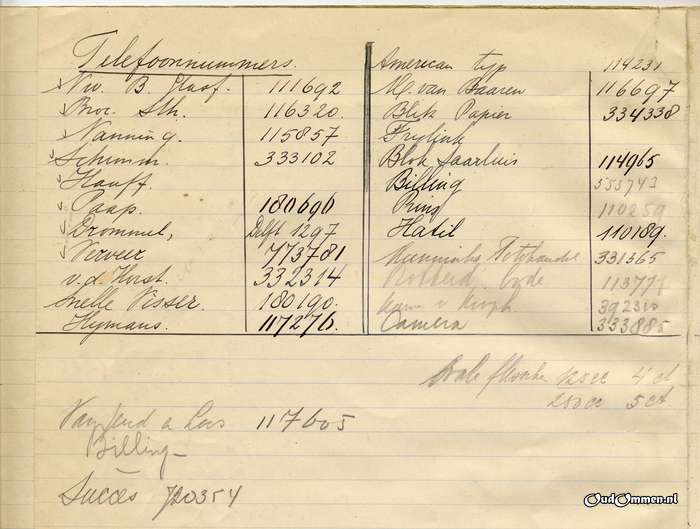 Telefoonnummers.
Niv. B. Haaf. 111692
Broc. Sth. 116320.
Nanning. 115857
Schimm. 333102
Hauff.
Paap. 180696
Drommel, Delft 1297
Verveer 773781
v.d. Horst. 332314
snelle Visser. 180190.
Hymans. 117276.
American typ 114231
v. van Baaren 116697
Blik Papier 334338
Frylink
Blok Saarluis 114965
Billing 555743
Ring 110259
Hatil 110189.
Fotohandel 331565
Rotterd. bode 11377
392310
Camera 333885
flesche 125 cc 4 ct
250 cc 5 ct
Van Gend a Loos 117605
Billing
Succes 720354
OudOmmen.nl